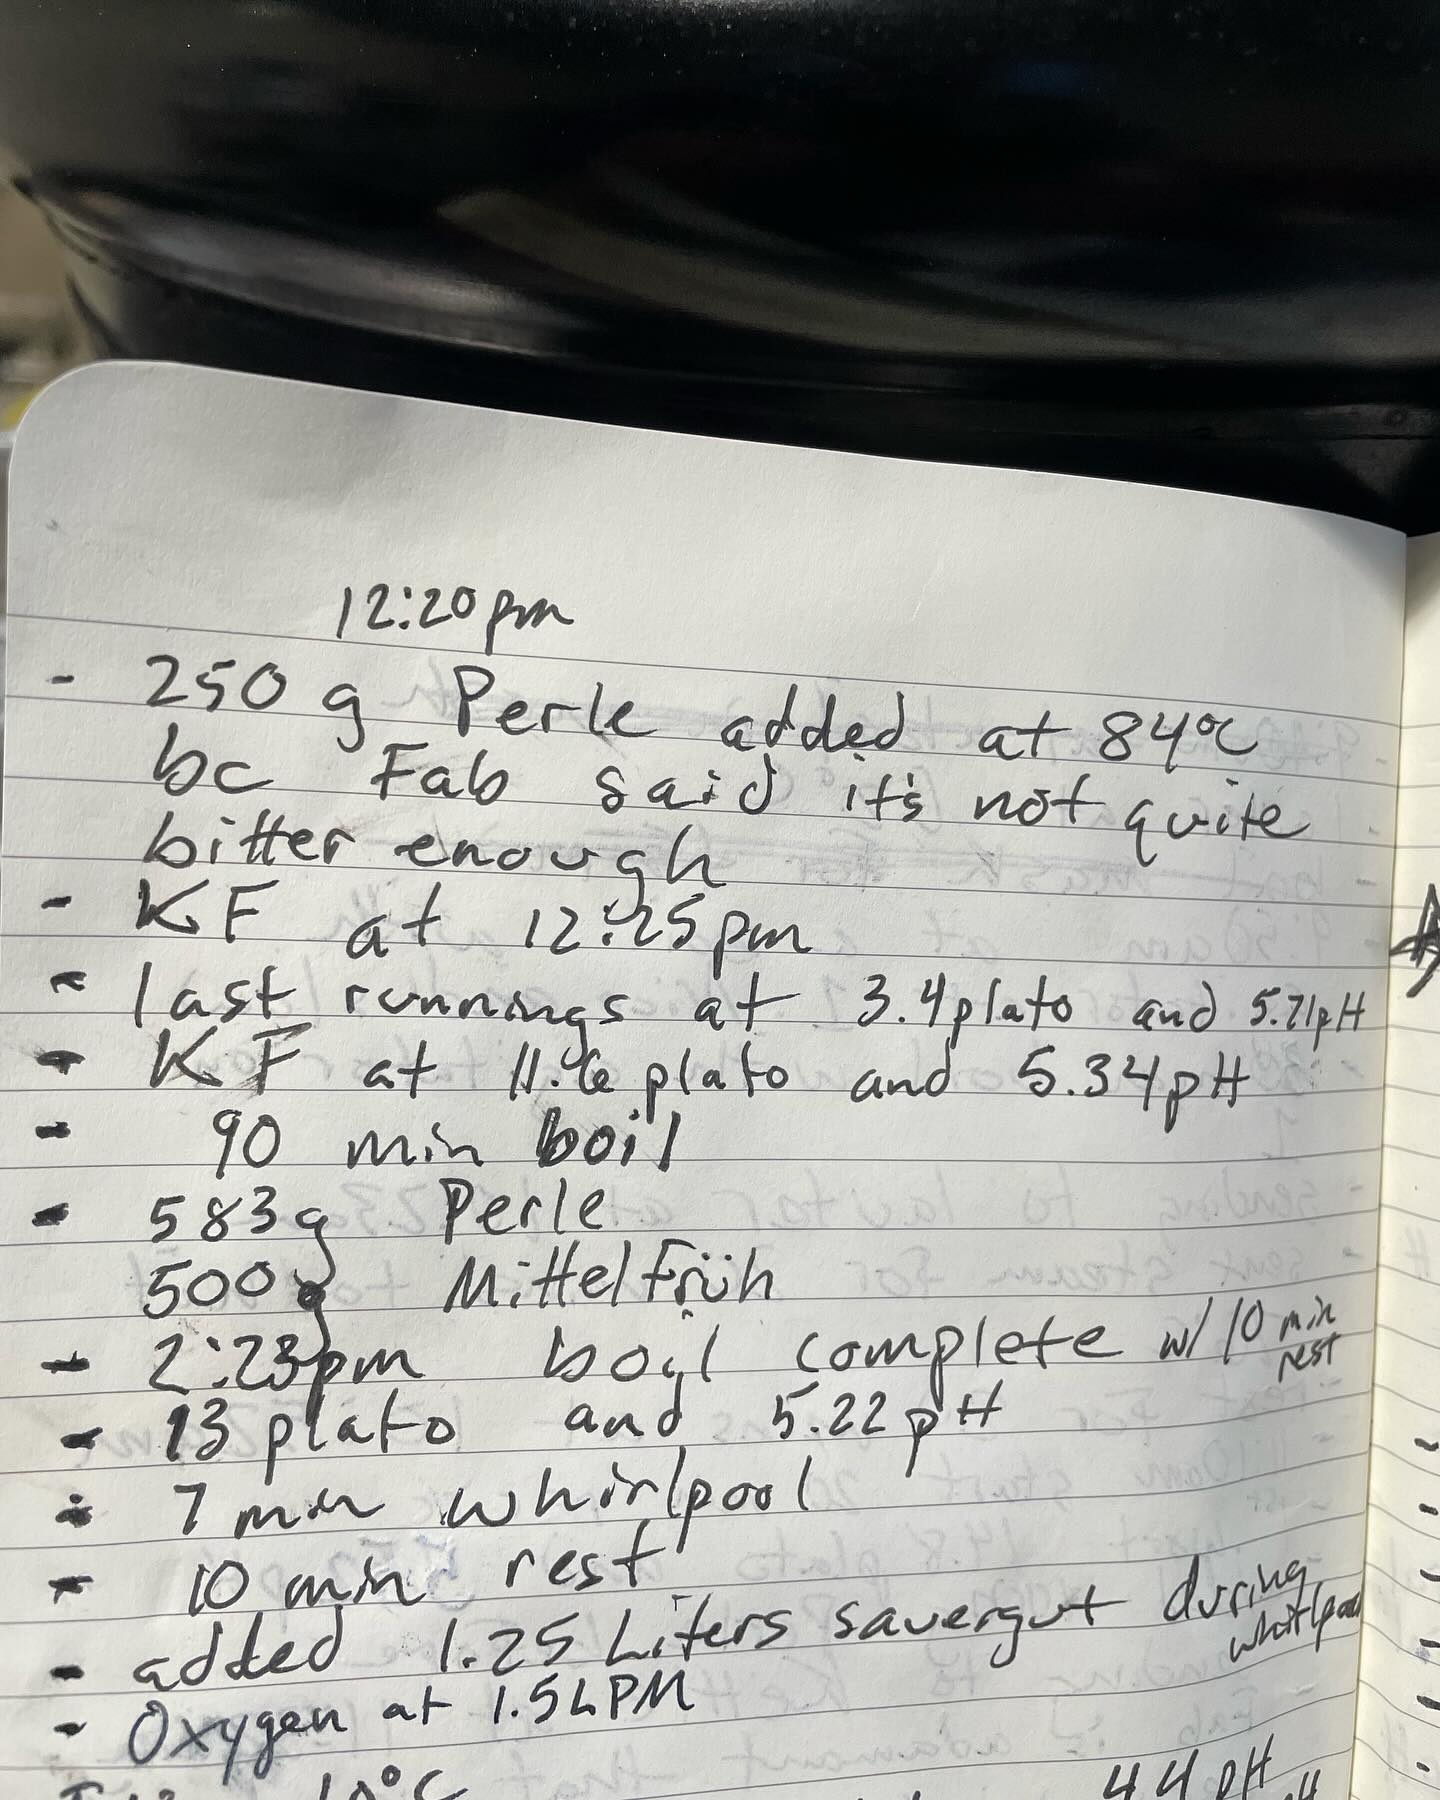 12:20pm
- 250 g Perle added at 84°C
bc Fab said it's not quite
bitter enough
- KF at 12:25pm
- last runnings at 3.4plato and 5.71pH
- KF at 11.6 plato and 5.34pH
- 90 min boil
- 583g Perle
500g MittelFrüh
- 2:23pm boil complete w/ 10 min
rest
- 13 plato and 5.22 pH
- 7 min whirlpool
- 10 min rest
- added 1.25 Liters sauergut during
whirlpool
- Oxygen at 1.5LPM
10°C 4.4 pH